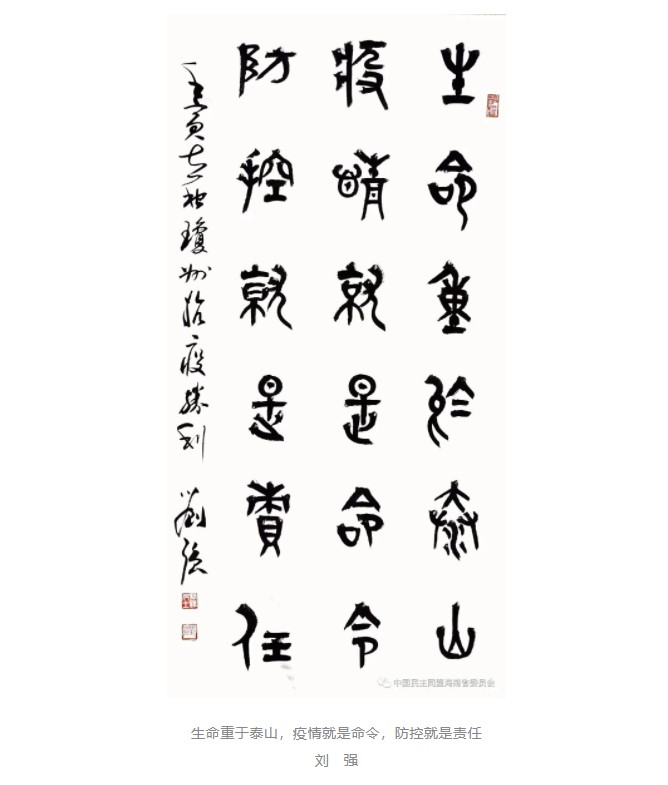 生命重於泰山
疫情就是命令
防控就是責任
壬寅
瓊州抗疫勝利
劉強
中国民主同盟海南省委员会
生命重于泰山，疫情就是命令，防控就是责任
刘 强